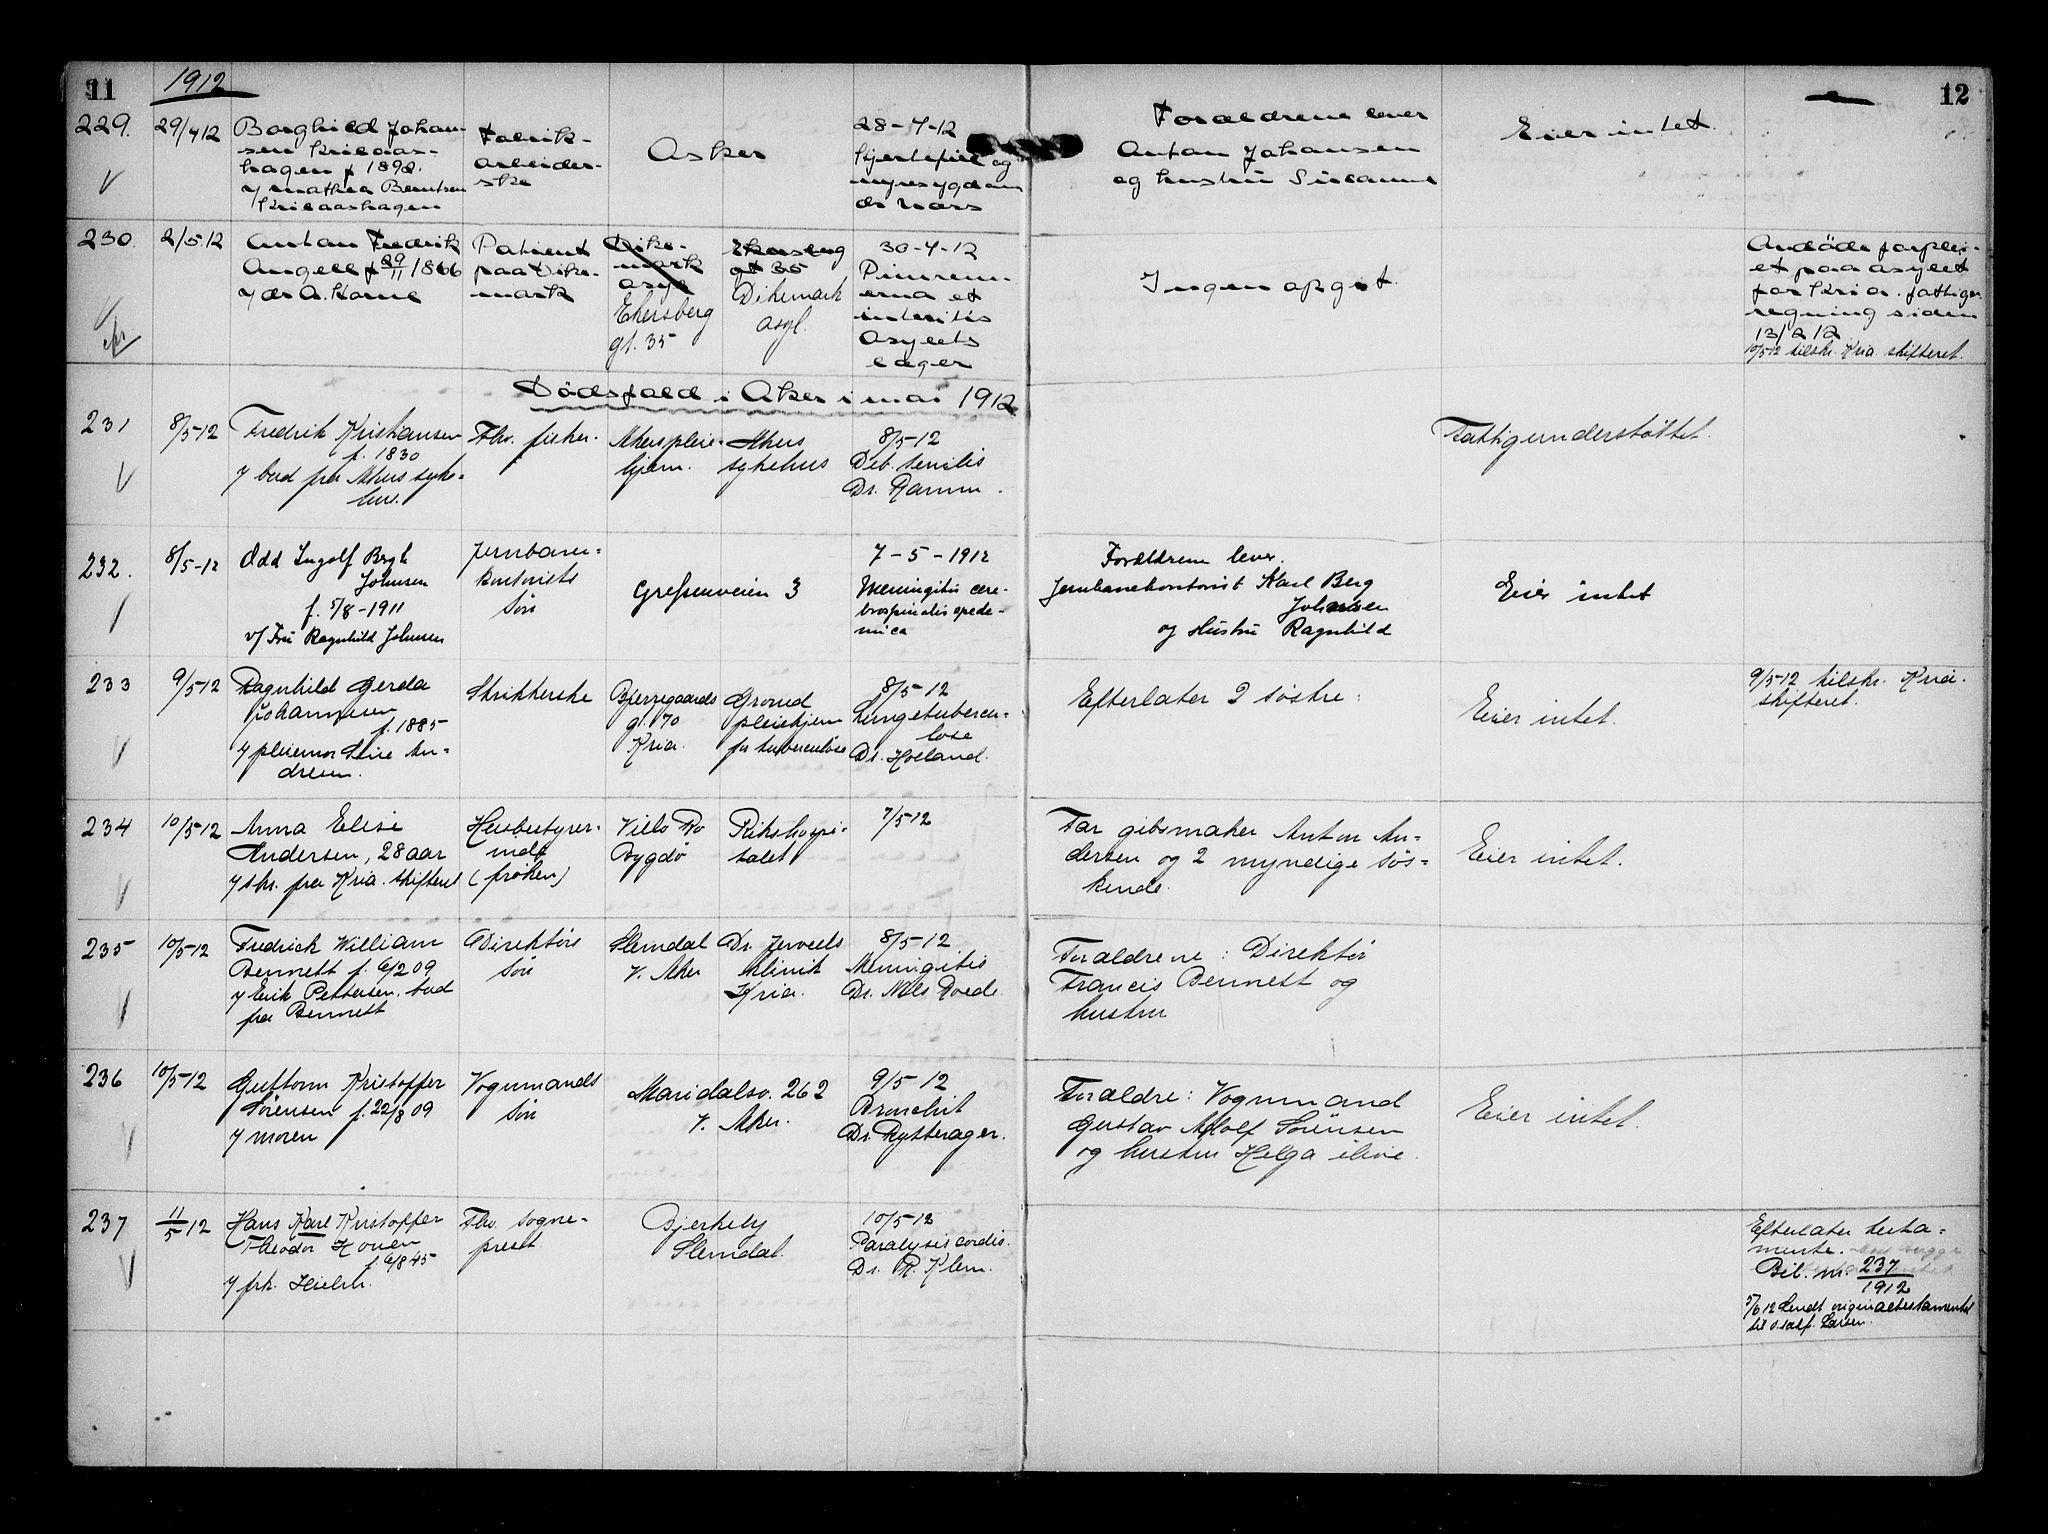 11
1912
12
229.
29/4 12
Borghild Johan-
sen
hagen f 1892.
v/ Mathea Berntsen
Fabrik-
arbeider-
ske
Asker
28-4-12
Hjertefeil og
nyresygdom
dr
Forældrene lever
Anton Johansen
og hustru Susanne
Eier intet.
230.
2/5.12
Anton Fredrik
Angell f 1866
v/ dr A. Horne
Patient
paa Dike-
mark
Dike-
mark
asyl
Ekersberg
gt. 35
Ekersberg
gt 35
Dikemark
asyl.
30-4-12
et
Asylets
læger
Ingen opgit.
Avdöde forplei-
et paa asylet
for Kria. fattige-
regning siden
13/2 12
10/5-12 tilskr. Kria skifteret.
Dødsfald i Aker i mai 1912
231
8/5-12
Fredrik Kristiansen
f. 1830
v/ bud fra Akers syke-
hus.
Fhv. fisker.
Akers pleie-
hjem.
Akers
sykehus
8/5-12
Deb. senilis
Dr. Ramm.
Fattigunderstöttet.
232.
8/5-12
Odd Ingolf Bergh
Johnsen
f. 5/8-1911
v/ Fru Ragnhild Johnsen
Jernbane-
kontorists
sön
Grefsenveien 3
7-5-1912
Meningitis cere-
brospinalis epede-
mica
Forældrene lever.
Jernbanekontorist Karl Berg
Johnsen
og Hustru Ragnhild
Eier intet
233
9/5 12
Ragnhild Gerda
Johannesen
f. 1885
v/ pleiemor Stine An-
dresen.
Strikkerske
Bjerregaards
gt. 70
Kria.
Grorud
pleiehjem
for tuberculöse
8/5-12
Lungetubercu-
lose
Dr. Hoeland.
Efterlater 2 söstre:
Eier intet.
9/5-12 tilskr. Kria.
skifteret.
234
10/5 12
Anna Elise
Andersen, 28 aar
v/ skr. fra Kria. skifteret
Husbestyrer-
inde
(frøken)
Villa Ro
Bygdø
Rikshospi-
talet
7/5-12
Far gibsmaker Anton An-
dersen og 2 myndige søs-
kende.
Eier intet.
235
10/5-12
Fredrick William
Bennett f. 6/2 09
v/ Erik Pettersen, bud
fra Bennett
Direktørs
søn
Slemdal
V. Aker
Dr. Jervells
klinik
Kria.
8/5-12
Meningitis
Dr. Nils
Forældrene: Direktør
Francis Bennett og
hustru
236
10/5-12
Guttorm Kristoffer
Sörensen f. 22/8 09
v/ moren
Vognmands
sön
Maridalsv. 262
V. Aker.
9/5 12
Bronchit
Dr. Rytterager.
Forældre: Vognmand
Gustav Adolf Sörensen
og hustru Helga ilive.
Eier intet.
237
11/5 12
Hans Karl Kristoffer
Theodor Houen
f. 6/8 45
v/ frk.
Fhv. sogne-
prest
Bjerkely
Slemdal.
10/5-12
Paralysis cordis.
Dr. R. Klem.
Efterlater testa-
mente.
Bil. nr. 237/1912
5/6 12 Sendt originaltestamentet
til Larsen.